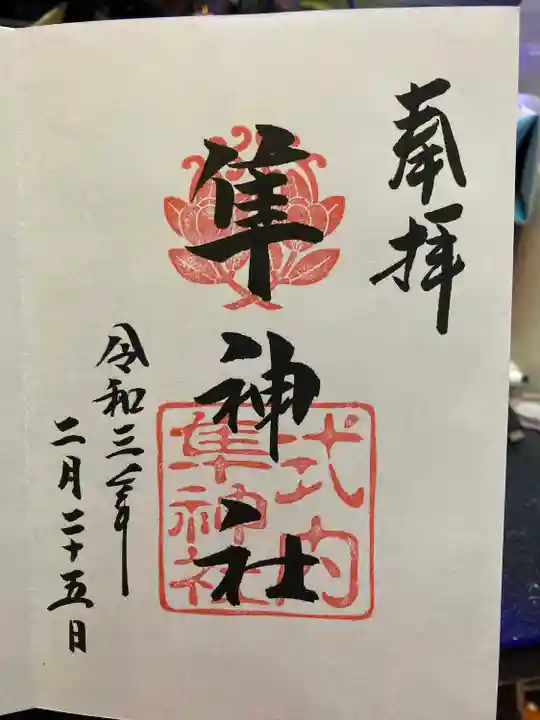 奉拝
隼神社
式内
隼神社
令和三年
二月二十五日